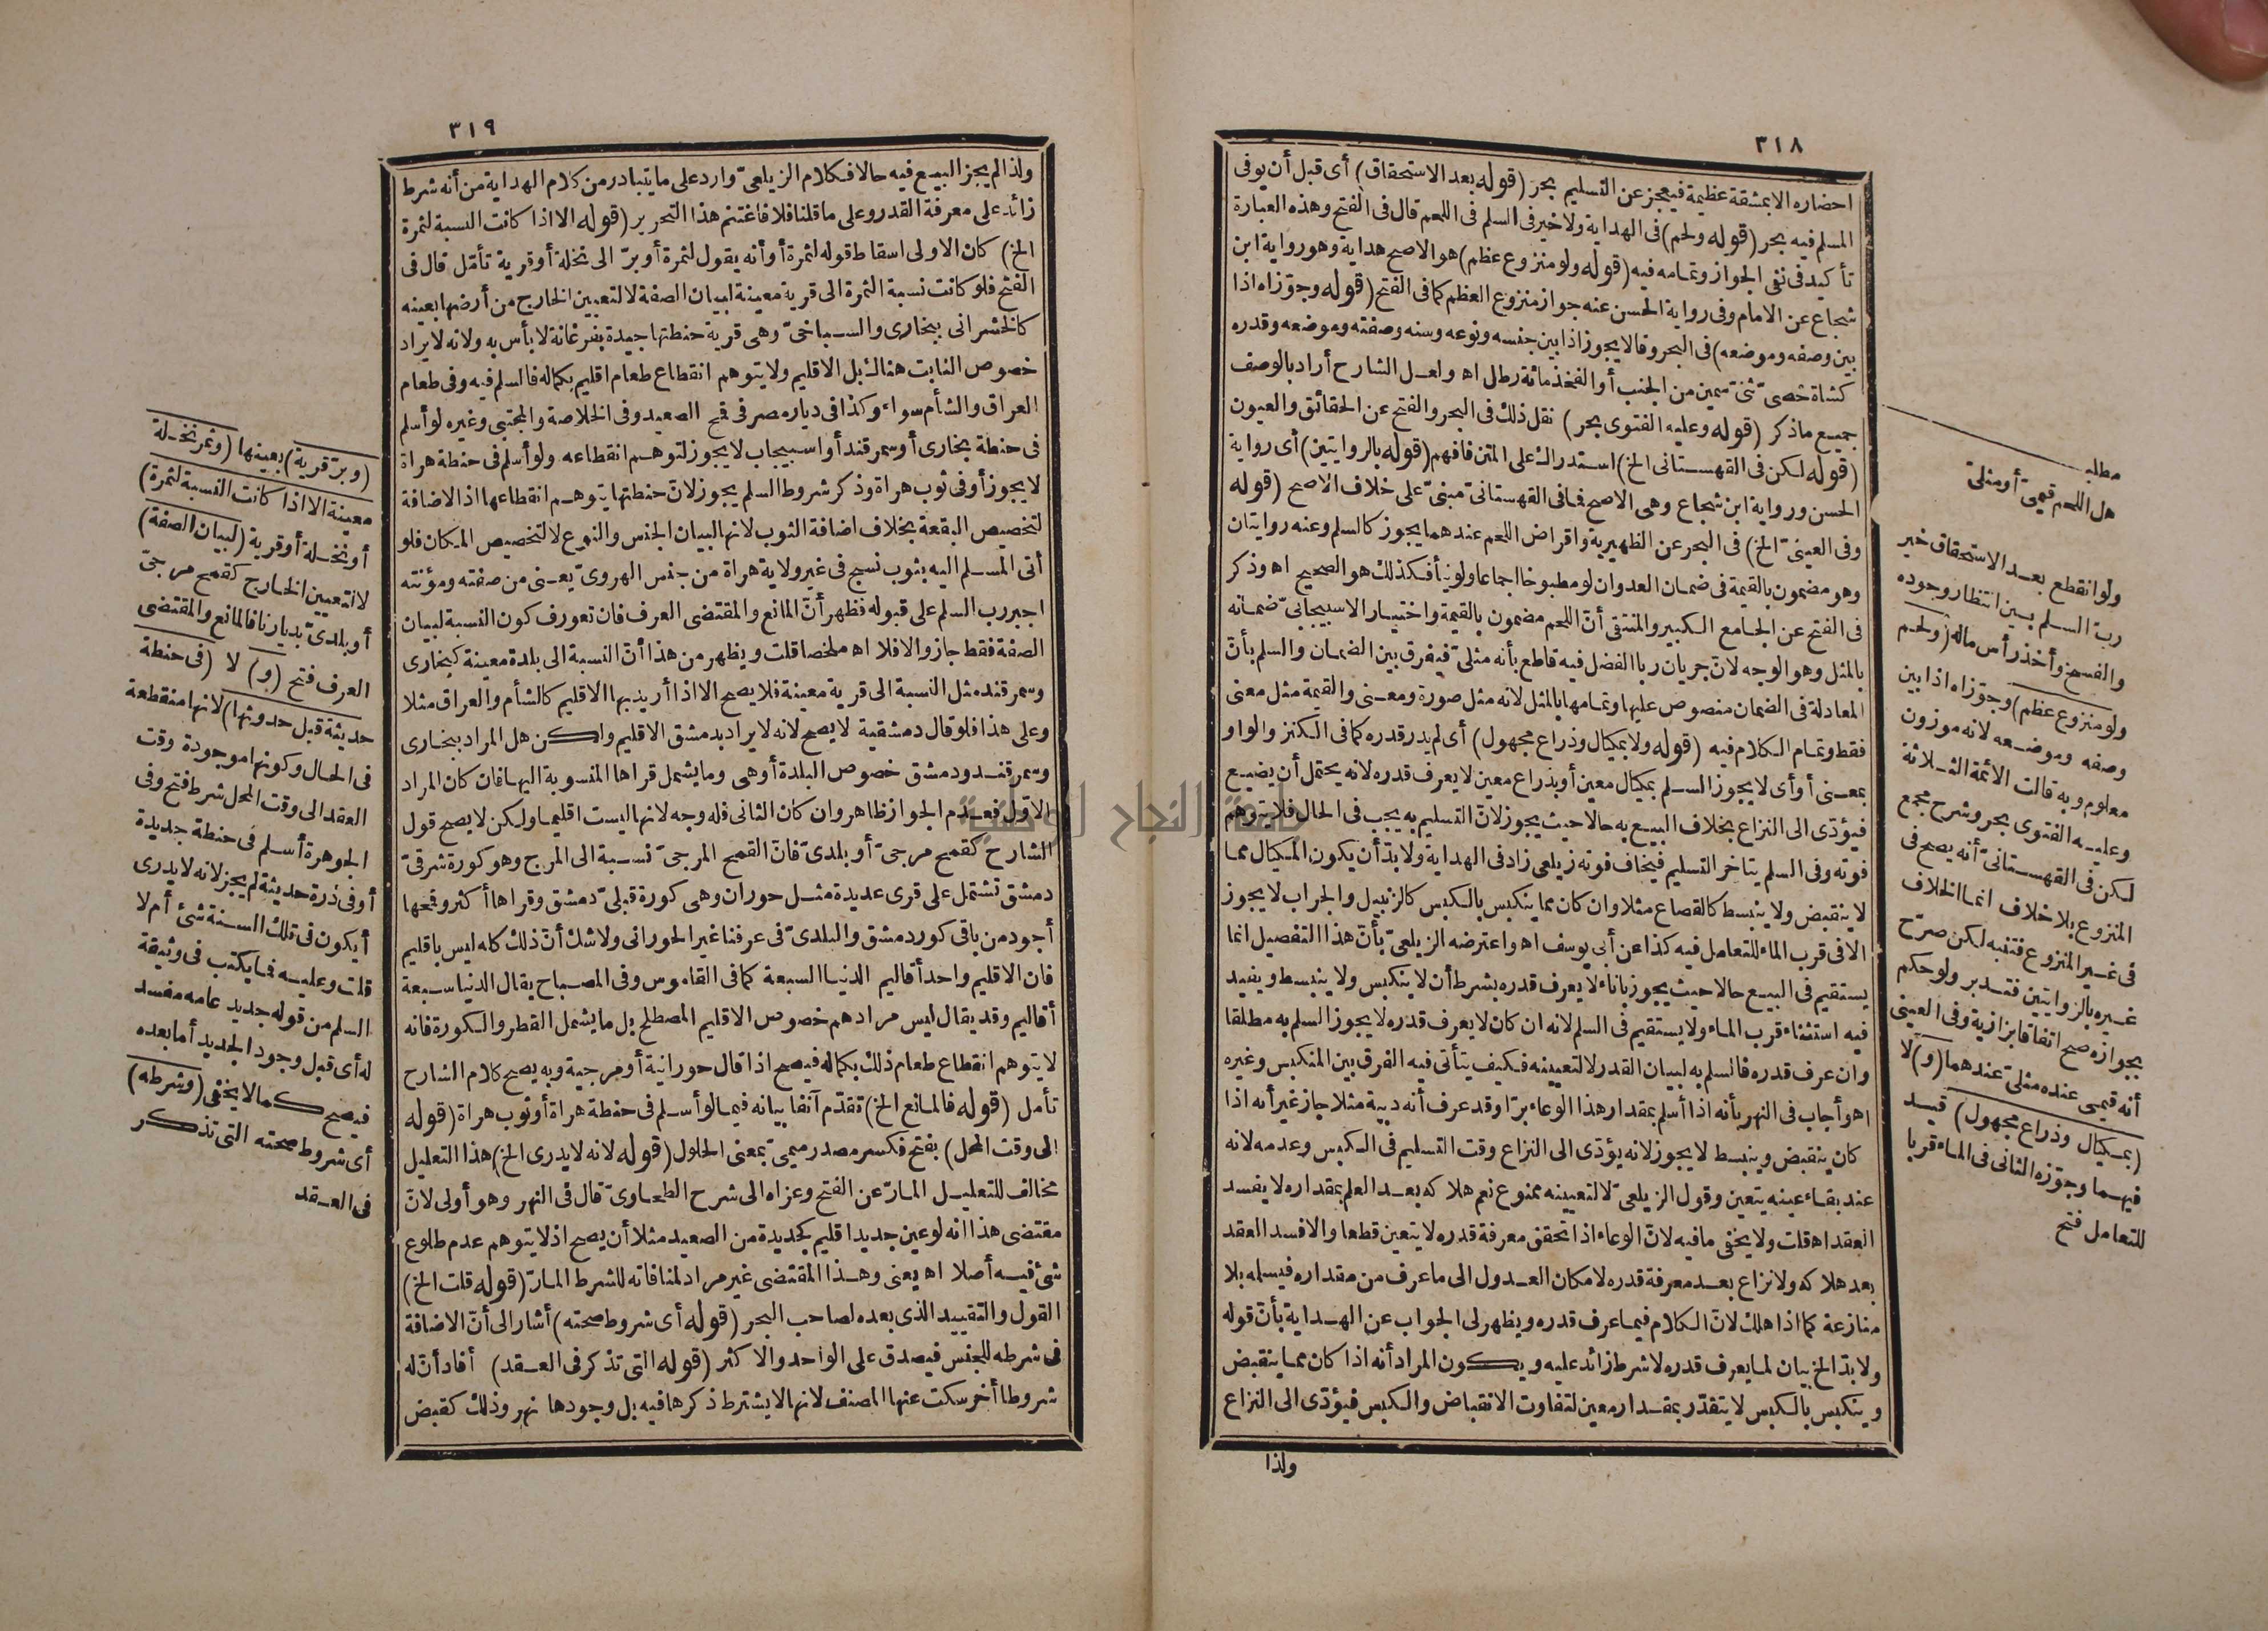 ٣١٨
احضاره الا بمشقة عظيمة فيعجز عن التسليم بحر (قوله بعد الاستحقاق) أى قبل أن يوفى
المسلم فيه بحر (قوله ولحم) فى الهداية ولا خير فى السلم فى اللحم قال فى الفتح وهذه العبارة
تأكيد فى نفى الجواز وتمامه فيه (قوله ولو منزوع عظم) هو الاصح هداية وهو رواية ابن
شجاع عن الامام وفى رواية الحسن عنه جواز منزوع العظم كما فى الفتح (قوله وجوّزاه اذا
بين وصفه وموضعه) فى البحر وقالا يجوز اذا بين جنسه ونوعه وسنه وصفته وموضعه وقدره
كشاة خصىّ ثنىّ سمين من الجنب أو الفخذ مائة رطل اه ولعل الشارح أراد بالوصف
جميع ما ذكر (قوله وعليه الفتوى بحر) نقل ذلك فى البحر والفتح عن الحقائق والعيون
(قوله لكن فى القهستانى الخ) استدراك على المتن فافهم (قوله بالروايتين) أى رواية
الحسن ورواية ابن شجاع وهى الاصح فما فى القهستانىّ مبنىّ على خلاف الاصح (قوله
وفى العينىّ الخ) فى البحر عن الظهيرية واقراض اللحم عندهما يجوز كالسلم وعنه روايتان
وهو مضمون بالقيمة فى ضمان العدوان لو مطبوخا اجماعا ولو نيأ فكذلك هو الصحيح اه وذكر
فى الفتح عن الجامع الكبير والمنتقى أنّ اللحم مضمون بالقيمة واختيار الاسبيجابىّ ضمانه
بالمثل وهو الوجه لانّ جريان ربا الفضل فيه قاطع بأنه مثلىّ فيفرق بين الضمان والسلم بأنّ
المعادلة فى الضمان منصوص عليها وتمامها بالمثل لانه مثل صورة ومعنى والقيمة مثل معنى
فقط وتمام الكلام فيه (قوله ولا بمكيال وذراع مجهول) أى لم يدر قدره كما فى الكنز والواو
بمعنى أو أى لا يجوز السلم بمكيال معين أو بذراع معين لا يعرف قدره لانه يحتمل أن يضيع
فيؤدّى الى النزاع بخلاف البيع به حالا حيث يجوز لانّ التسليم به يجب فى الحال فلا يتوهم
فوته وفى السلم يتأخر التسليم فيخاف فوته زيلعى زاد فى الهداية ولا بدّ أن يكون المكيال مما
لا ينقبض ولا ينبسط كالقصاع مثلا وان كان مما ينكبس بالكبس كالزنبيل والجراب لا يجوز
الا فى قرب الماء للتعامل فيه كذا عن أبى يوسف اه واعترضه الزيلعىّ بأنّ هذا التفصيل انما
يستقيم فى البيع حالا حيث يجوز باناء لا يعرف قدره بشرط أن لا ينكبس ولا ينبسط ويفيد
فيه استثناء قرب الماء ولا يستقيم فى السلم لانه ان كان لا يعرف قدره لا يجوز السلم به مطلقا
وان عرف قدره فالسلم به لبيان القدر لا لتعيينه فكيف يتأتى فيه الفرق بين المنكبس وغيره
اه وأجاب فى النهر بأنه اذا أسلم بمقدار هذا الوعاء برّا وقد عرف أنه ويبة مثلا جاز غير أنه اذا
كان ينقبض وينبسط لا يجوز لانه يؤدّى الى النزاع وقت التسليم فى الكبس وعدمه لانه
عند بقاء عينه يتعين وقول الزيلعىّ لا لتعيينه ممنوع نعم هلاكه بعد العلم بمقداره لا يفسد
العقد اه قلت ولا يخفى ما فيه لانّ الوعاء اذا تحقق معرفة قدره لا يتعين قطعا والا فسد العقد
بعد هلاكه ولا نزاع بعد معرفة قدره لامكان العدول الى ما عرف من مقداره فيسلمه بلا
منازعة كما اذا هلك لانّ الكلام فيما عرف قدره ويظهر لى الجواب عن الهداية بأنّ قوله
ولا بدّ الخ بيان لما يعرف قدره لا شرط زائد عليه ويكون المراد أنه اذا كان مما ينقبض
وينكبس بالكبس لا يتقدّر بمقدار معين لتفاوت الانقباض والكبس فيؤدّى الى النزاع
ولذا
مطلب
هل اللحم قيمىّ أو مثلىّ
ولو انقطع بعد الاستحقاق خير
ربّ السلم بين انتظار وجوده
والفسخ وأخذ رأس ماله (ولحم
ولو منزوع عظم) وجوّزاه اذا بين
وصفه وموضعه لانه موزون
معلوم وبه قالت الأئمة الثلاثة
وعليه الفتوى بحر وشرح مجمع
لكن فى القهستانىّ أنه يصح فى
المنزوع بلا خلاف انما الخلاف
فى غير المنزوع فتنبه لكن صرّح
غيره بالروايتين فتدبر ولو حكم
بجوازه صح اتفاقا بزازية وفى العينى
أنه قيمى عنده مثلىّ عندهما (و) لا
(بمكيال وذراع مجهول) قيد
فيهما وجوّزه الثانى فى الماء قربا
للتعامل فتح
٣١٩
ولذا لم يجز البيع فيه حالا فكلام الزيلعىّ وارد على ما يتبادر من كلام الهداية من أنه شرط
زائد على معرفة القدر وعلى ما قلنا فلا فاغتنم هذا التحرير (قوله الا اذا كانت النسبة لثمرة
الخ) كان الاولى اسقاط قوله لثمرة أو أنه يقول لثمرة أو برّ الى نخلة أو قرية تأمّل قال فى
الفتح فلو كانت نسبة الثمرة الى قرية معينة لبيان الصفة لا لتعيين الخارج من أرضها بعينه
كالخشرانى ببخارى والسباخىّ وهى قرية حنطتها جيدة بفرغانة لا بأس به ولانه لا يراد
خصوص النابت هنالك بل الاقليم ولا يتوهم انقطاع طعام اقليم بكماله فالسلم فيه وفى طعام
العراق والشأم سواء وكذا فى ديار مصر فى قمح الصعيد وفى الخلاصة والمجتبى وغيره لو أسلم
فى حنطة بخارى أو سمرقند أو اسبيجاب لا يجوز لتوهم انقطاعه ولو أسلم فى حنطة هراة
لا يجوز أو فى ثوب هراة وذكر شروط السلم يجوز لانّ حنطتها يتوهم انقطاعها اذ الاضافة
لتخصيص البقعة بخلاف اضافة الثوب لانها لبيان الجنس والنوع لا لتخصيص المكان فلو
أتى المسلم اليه بثوب نسج فى غير ولاية هراة من جنس الهروىّ يعنى من صفته ومؤنته
اجبر رب السلم على قبوله فظهر أنّ المانع والمقتضى العرف فان تعورف كون النسبة لبيان
الصفة فقط جاز والا فلا اه ملخصا قلت ويظهر من هذا أنّ النسبة الى بلدة معينة كبخارى
وسمرقند مثل النسبة الى قرية معينة فلا يصح الا اذا أريد بها الاقليم كالشأم والعراق مثلا
وعلى هذا فلو قال دمشقية لا يصح لانه لا يراد بدمشق الاقليم ولكن هل المراد ببخارى
وسمرقند ودمشق خصوص البلدة أو هى وما يشمل قراها المنسوبة اليها فان كان المراد
الاوّل فعدم الجواز ظاهر وان كان الثانى فله وجه لانها ليست اقليما ولكن لا يصح قول
الشارح كقمح مرجىّ أو بلدىّ فانّ القمح المرجىّ نسبة الى المرج وهو كورة شرقىّ
دمشق تشتمل على قرى عديدة مثل حوران وهى كورة قبلىّ دمشق وقراها أكثر وقمحها
أجود من باقى كور دمشق والبلدىّ فى عرفنا غير الحورانى ولا شك أنّ ذلك كله ليس باقليم
فان الاقليم واحد أقاليم الدنيا السبعة كما فى القاموس وفى المصباح يقال الدنيا سبعة
أقاليم وقد يقال ليس مرادهم خصوص الاقليم المصطلح بل ما يشمل القطر والكورة فانه
لا يتوهم انقطاع طعام ذلك بكماله فيصح اذا قال حورانية أو مرجية وبه يصح كلام الشارح
تأمل (قوله فالمانع الخ) تقدّم آنفا بيانه فيما لو أسلم فى حنطة هراة أو ثوب هراة (قوله
الى وقت المحل) بفتح فكسر مصدر ميمىّ بمعنى الحلول (قوله لانه لا يدرى الخ) هذا التعليل
مخالف للتعليل المارّ عن الفتح وعزاه الى شرح الطحاوىّ قال فى النهر وهو أولى لانّ
مقتضى هذا انه لو عين جديد اقليم كجديدة من الصعيد مثلا أن يصح اذ لا يتوهم عدم طلوع
شئ فيه أصلا اه يعنى وهذا المقتضى غير مراد لمنافاته للشرط المارّ (قوله قلت الخ)
القول والتقييد الذى بعده لصاحب البحر (قوله أى شروط صحته) أشار الى أنّ الاضافة
فى شرطه للجنس فيصدق على الواحد والاكثر (قوله التى تذكر فى العقد) أفاد أنّ له
شروطا أخر سكت عنها المصنف لانها لا يشترط ذكرها فيه بل وجودها نهر وذلك كقبض
(وبرّ قرية) بعينها (وثمر نخلة
معينة الا اذا كانت النسبة لثمرة)
أو نخلة أو قرية (لبيان الصفة)
لا لتعيين الخارج كقمح مرجىّ
أو بلدىّ بديارنا فالمانع والمقتضى
العرف فتح (و) لا (فى حنطة
حديثة قبل حدوثها) لانها منقطعة
فى الحال وكونها موجودة وقت
العقد الى وقت المحل شرط فتح وفى
الجوهرة أسلم فى حنطة جديدة
أو فى ذرة حديثة لم يجز لانه لا يدرى
أيكون فى تلك السنة شئ أم لا
قلت وعليه فما يكتب فى وثيقة
السلم من قوله جديد عامه مفسد
له أى قبل وجود الجديد أما بعده
فيصح كما لا يخفى (وشرطه)
أى شروط صحته التى تذكر
فى العقد